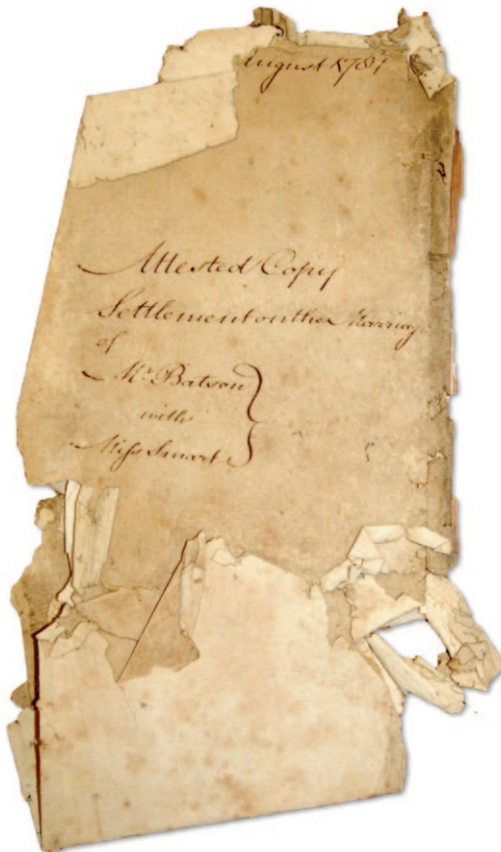 August 1787
Attested Copy
Settlement on the Marriage
of
Mr. Batson
with
Miss Smart